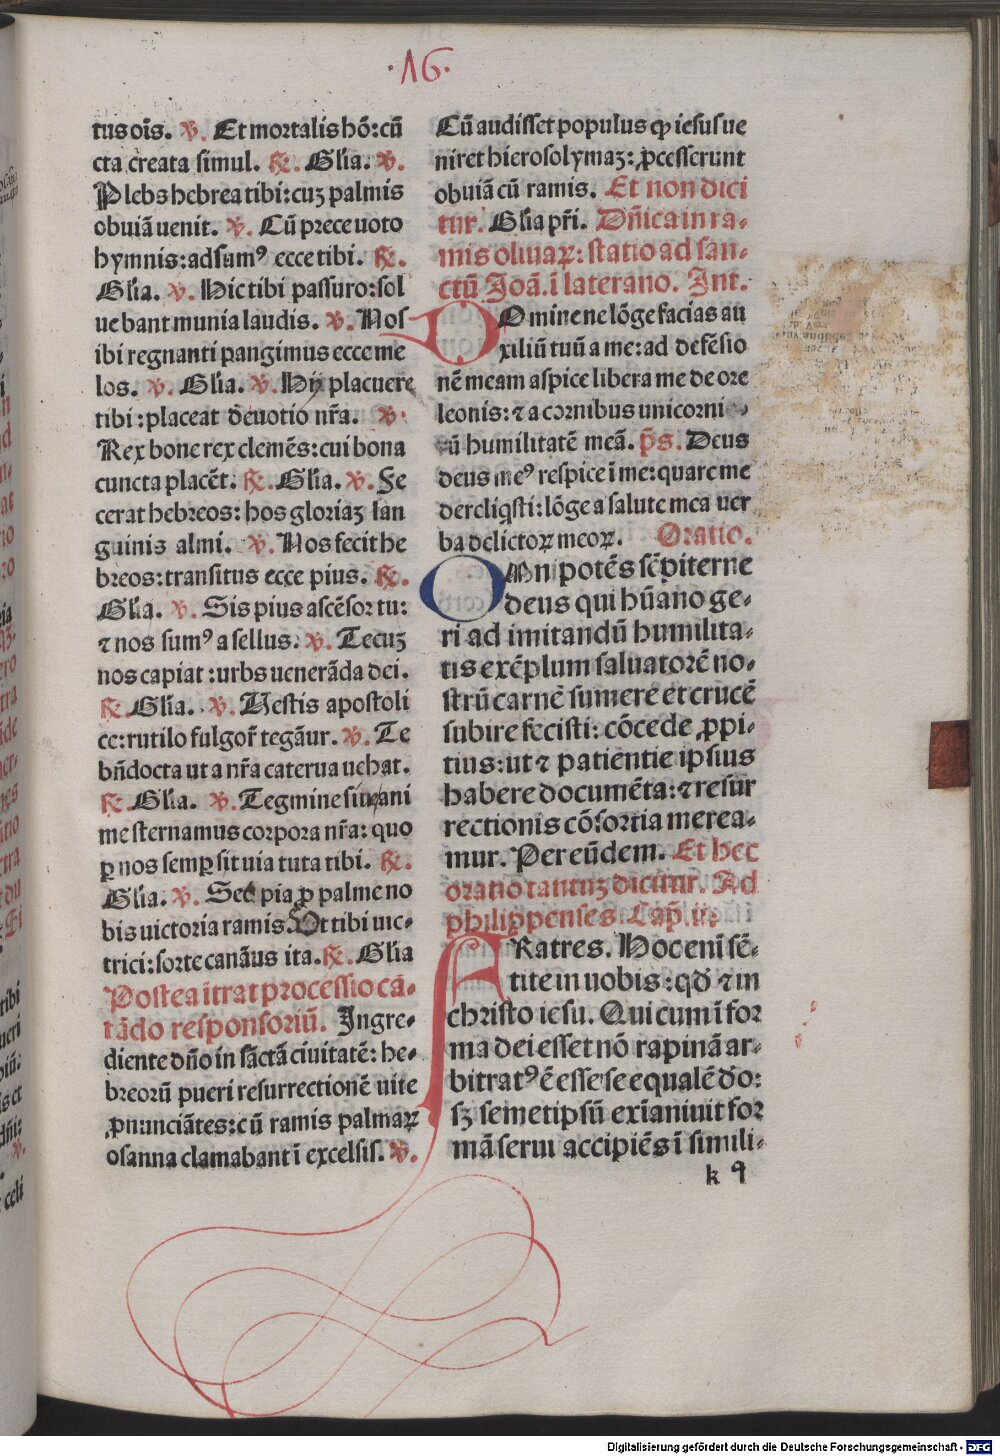 ·16·
tus oīs. ℣. Et mortalis hō: cū
cta creata simul. ℟. Gl̄ia. ℣.
Plebs hebrea tibi: cuȝ palmis
obuiā uenit. ℣. Cū prece uoto
hymnis: adsumꝰ ecce tibi. ℟.
Gl̄ia. ℣. Hic tibi passuro: sol
uebant munia laudis. ℣. Nos
ibi regnanti pangimus ecce me
los. ℣. Gl̄ia. ℣. Hij placuere
tibi: placeat deuotio nr̄a. ℣.
Rex bone rex clemēs: cui bona
cuncta placēt. ℟. Gl̄ia. ℣. Fe
cerat hebreos: hos gloriaȝ san
guinis almi. ℣. Nos fecit he
breos: transitus ecce pius. ℟.
Gl̄ia. ℣. Sis pius ascēsor tu:
⁊ nos sumꝰ asellus. ℣. Tecuȝ
nos capiat: urbs uenerāda dei.
℟. Gl̄ia. ℣. Vestis apostoli
ce: rutilo fulgor̄ tegāur. ℣. Te
bn̄ docta ut a nr̄a caterua uehat.
℟. Gl̄ia. ℣. Tegmine siue ani
me sternamus corpora nr̄a: quo
ꝑ nos semꝑ sit uia tuta tibi. ℟.
Gl̄ia. ℣. Sed pia ꝓ palme no
bis uictoria ramis. Vt tibi uic-
trici: sorte canāus ita. ℟. Gl̄ia
Postea itrat processio cā-
tādo responsoriū. Ingre-
diente dn̄o in sāctā ciuitatē: he-
breorū pueri resurrectionē uite
ꝓnunciātes: cū ramis palmaꝝ
osanna clamabant ī excelsis. ℣.
Cū audisset populus ꝙ iesus ue
niret hierosolymaȝ: ꝓcesserunt
obuiā cū ramis. Et non dici
tur. Gl̄ia pr̄i. Dn̄ica in ra-
mis oliuaꝝ: statio ad san-
ctū Joā. ī laterano. Int.
DOmine ne lōge facias au
xiliū tuū a me: ad defēsio
nē meam aspice libera me de ore
leonis: ⁊ a cornibus unicorni
ū humilitatē meā. p̄s. Deus
deus meꝰ respice ī me: quare me
dereliq̇sti: lōge a salute mea uer
ba delictoꝝ meoꝝ. Oratio.
OMnipotēs sēpiterne
deus qui hūano ge-
ri ad imitandū humilita-
tis exēplum saluatorē no-
strū carnē sumere et crucē
subire fecisti: cōcede ꝓpi-
tius: ut ⁊ patientie ipsius
habere documēta: ⁊ resur
rectionis cōsortia merea-
mur. Per eūdem. Et hec
oratio tantuȝ dicitur. Ad
philippenses. Cap̄. ii.
FRatres. Hoc enī sē-
tite in uobis: qd̄ ⁊ in
christo iesu. Qui cum ī for
ma dei esset nō rapinā ar-
bitratꝰ ē esse se equalē d̄o:
sȝ semetipsū exīaniuit for
mā serui accipiēs ī simili-
k 9
Digitalisierung gefördert durch die Deutsche Forschungsgemeinschaft - DFG